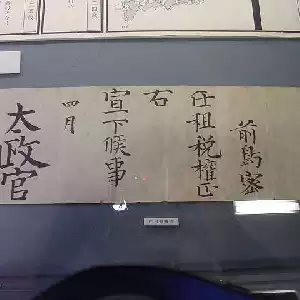 前島密
任租税権正
右
宣下候事
四月
太政官